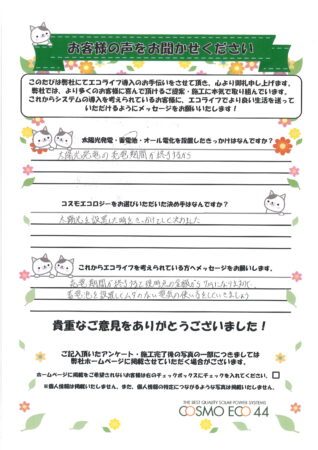 お客様の声をお聞かせください
このたびは弊社にてエコライフ導入のお手伝いをさせて頂き、心より御礼申し上げます。
弊社では、より多くのお客様に喜んで頂けるご提案・施工に本気で取り組んでいます。
これからシステムの導入を考えられているお客様に、エコライフでより良い生活を送って
いただけるようにメッセージをお願いいたします！
太陽光発電・蓄電池・オール電化を設置したきっかけはなんですか？
太陽光発電の売電期間が終了するから
コスモエコロジーをお選びいただいた決め手はなんですか？
太陽光を設置した時
これからエコライフを考えられている方へメッセージをお願いします。
売電期間が終了すると
蓄電池を設置してムダのない電気の使い方をしていきましょう
貴重なご意見をありがとうございました！
ご記入頂いたアンケート・施工完了後の写真の一部につきましては
弊社ホームページに掲載させていただく場合がございます。
ホームページに掲載をご希望されないお客様は右のチェックボックスにチェックを入れてください。
※個人情報は掲載いたしません。また、個人情報の特定につながるような写真は掲載いたしません。
THE BEST QUALITY SOLAR POWER SYSTEMS
COSMO ECO 44